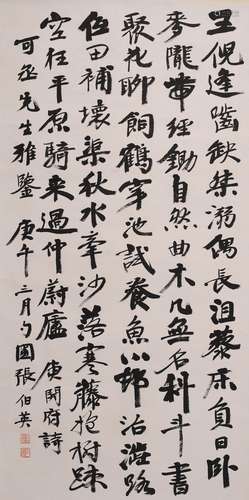 王倪逢齧缺桀溺偶長沮藜床負日臥
麥隴帶經鋤自然曲木几無名科斗書
聚花聊飼鶴穿池試養魚小邨治澁路
低田補壞渠秋水牽沙落寒藤抱樹疎
空枉平原騎來過仲蔚廬 庾開府詩
可丞先生雅鑒 庚午三月勺圃張伯英